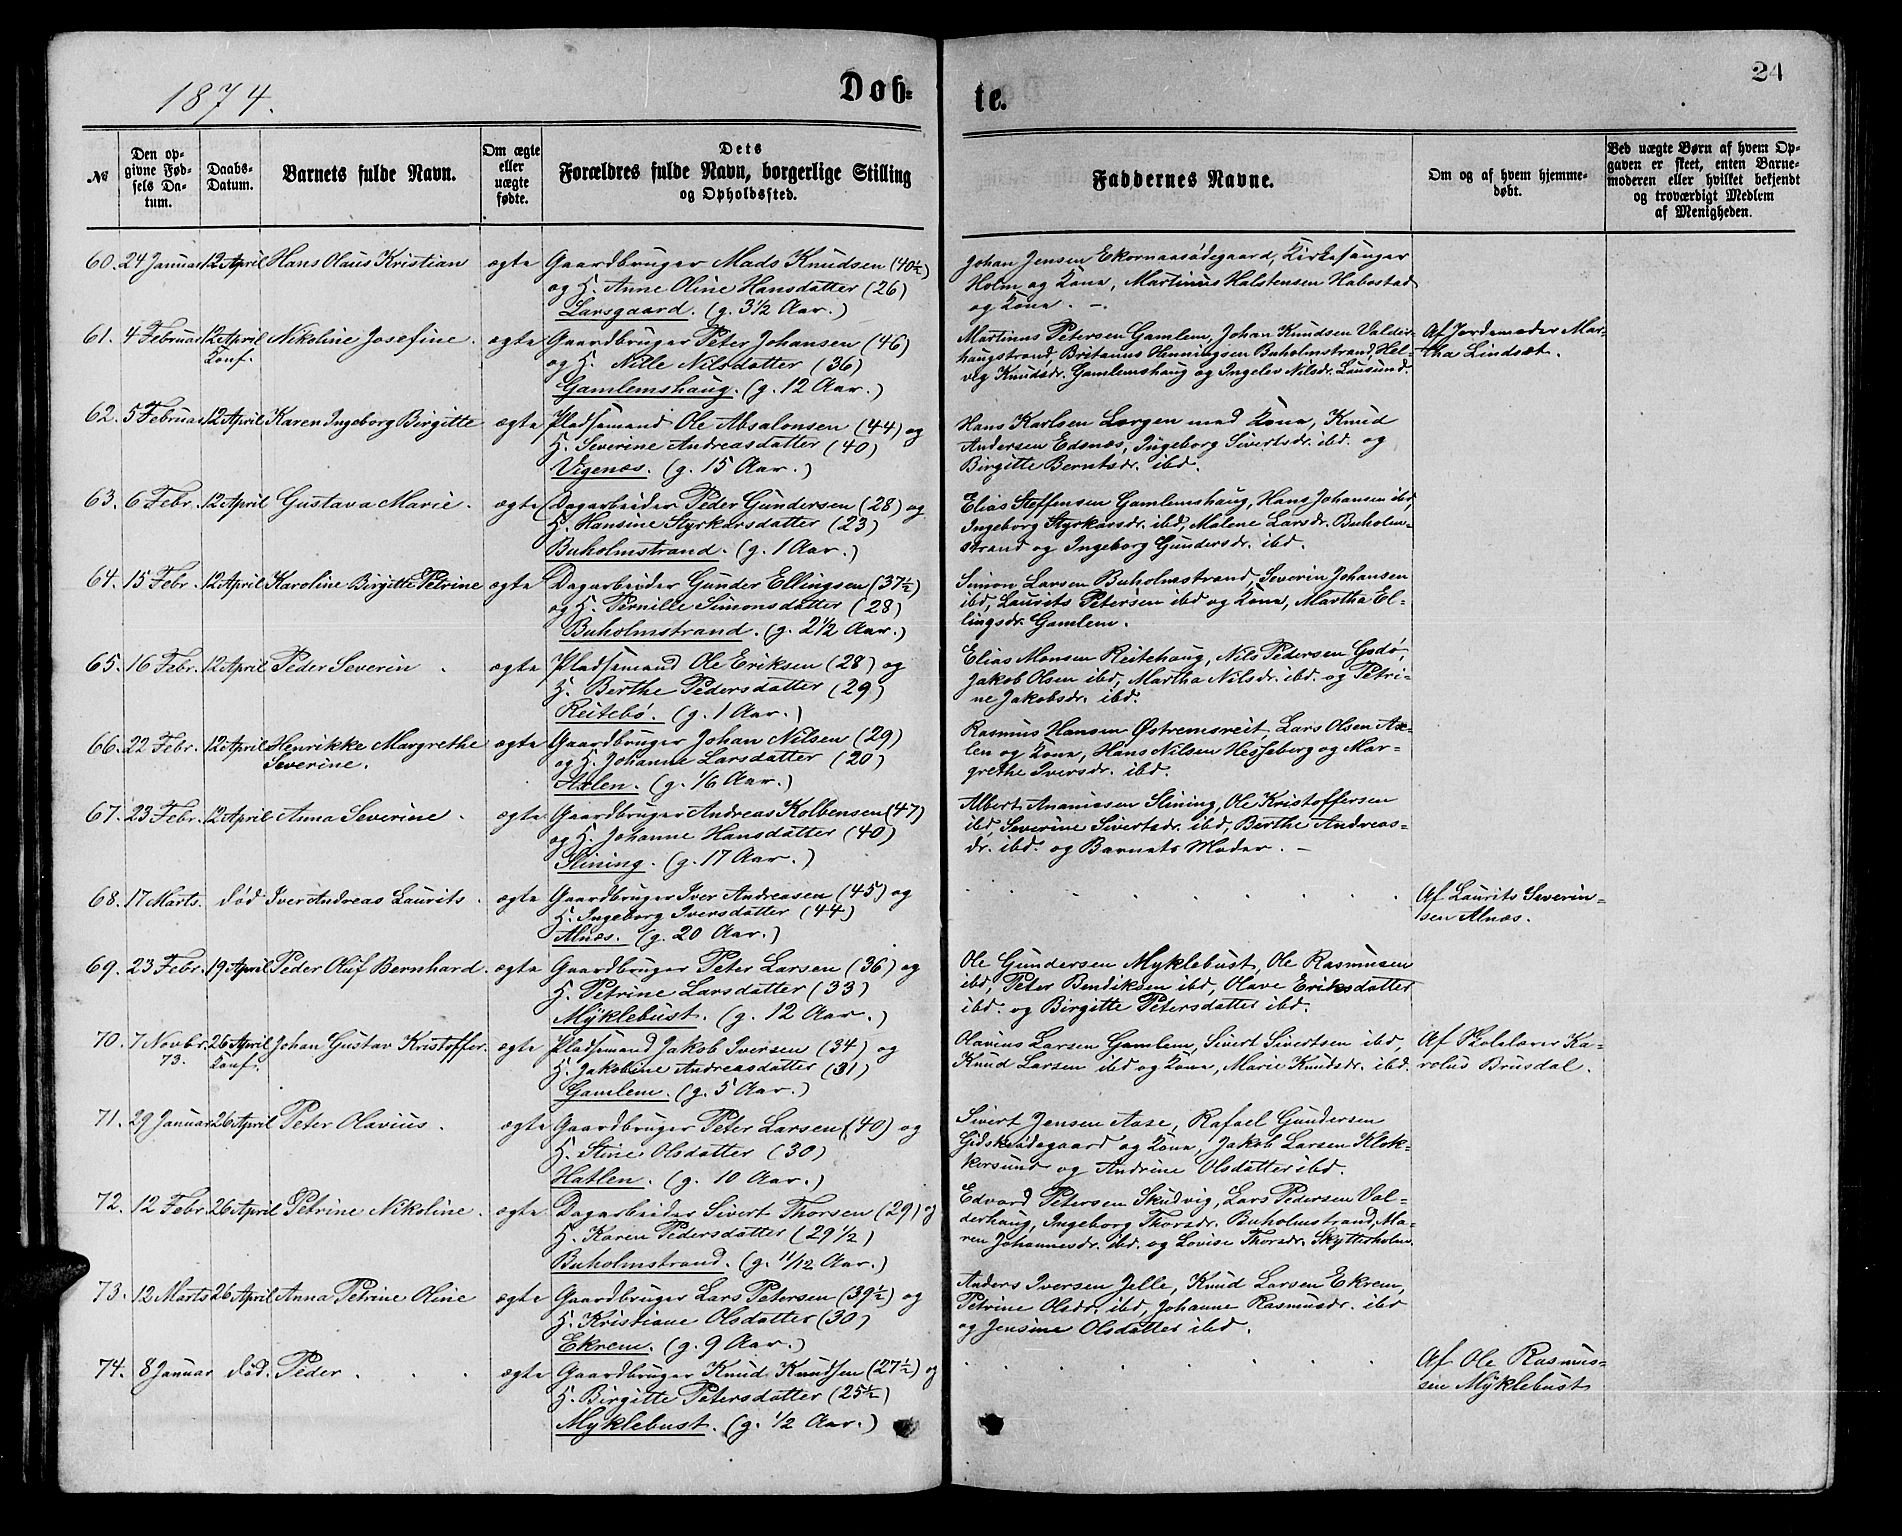 1874.
Døb-
te.
24
№
Den op-
givne Fød-
sels Da-
tum.
Daabs-
Datum.
Barnets fulde Navn.
Om ægte
eller
uægte
fødte.
Dets
Forældres fulde Navn, borgerlige Stilling
og Opholdssted.
Faddernes Navne.
Om og af hvem hjemme-
døbt.
Ved uægte Børn af hvem Op-
gaven er skeet, enten Barne-
moderen eller hvilket bekjendt
og troværdigt Medlem
af Menigheden.
60. 24 Januar 12 April Hans Olaus Kristian ægte Gaardbruger Mads Knudsen (40½)
og H. Anne Oline Hansdatter (26)
Larsgaard. (g. 3½ Aar.)
Johan Jensen Ekornaasødegaard, Kirkesanger
Holm og Kona, Martinus Halstensen Habostad
og Kona. –
61. 4 Februar 12 April Nikoline Josefine. ægte Gaardbruger Peter Johansen (46)
Konf.
og H. Nille Nilsdatter (36)
Gamlemshaug. (g. 12 Aar.)
Martinus Petersen Gamlem, Johan Knudsen Valder-
haugstrand, Britanus Henningsen Buholmstrand, Hel-
vig Knudsdr. Gamlemshaug og Ingelev Nilsdr. Lausund.
Af Jordemoder Mar-
tha Lindsæt.
62. 5 Februar 12 April Karen Ingeborg Birgitte ægte Pladsemand Ole Absalonsen (44) og
H. Severine Andreasdatter (40)
Vigenæs. (g. 15 Aar.)
Hans Karlsen Lorgen med Kona, Knud
Andersen Edsnæs, Ingeborg Sivertsdr. ibd. og
Birgitte Berntsdr. ibd.
63. 6 Febr. 12 April Gustava Marie. ægte Dagarbeider Peder Gundersen (28) og
H. Hansine Styrkersdatter (23)
Buholmstrand. (g. 1 Aar.)
Elias Steffensen Gamlemshaug, Hans Johansen ibd,
Ingeborg Styrkersdr. ibd, Malene Larsdr. Buholm-
strand og Ingeborg Gundersdr. ibd.
64. 15 Febr. 12 April Karoline Birgitte Petrine ægte Dagarbeider Gunder Ellingsen (37½)
og H. Pernille Simonsdatter (28)
Buholmstrand. (g. 2½ Aar.)
Simon Larsen Buholmstrand, Severin Johansen
ibd, Laurits Petersen ibd og Kona, Martha El-
lingsdr. Gamlem.
65. 16 Febr. 12 April Peder Severin. ægte Pladsemand Ole Eriksen (28) og
H. Berthe Pedersdatter (29)
Reitebø. (g. 1 Aar.)
Elias Monsen Reitehaug, Nils Pedersen Godø,
Jakob Olsen ibd, Martha Nilsdr. ibd. og Petri-
ne Jakobsdr. ibd.
66. 22 Febr. 12 April Henrikke Margrethe ægte Gaardbruger Johan Nilsen (29)
Severine.
og H. Johanne Larsdatter (20)
Axlen. (g. 1/6 Aar.)
Rasmus Hansen Østremsreit, Lars Olsen Ax-
len og Kona, Hans Nilsen Hesseberg og Mar-
grethe Iversdr. ibd.
67. 23 Febr. 12 April Anna Severine. ægte Gaardbruger Andreas Kolbensen (47)
og H. Johanne Hansdatter (40)
Slining. (g. 17 Aar.)
Albert Ananiasen Slining, Ole Kristoffersen
ibd, Severine Sivertsdr. ibd, Berthe Andreas-
dr. ibd. og Barnets Moder. –
68. 17 Marts. død Iver Andreas Laurits. ægte Gaardbruger Iver Andreasen (45) og
H. Ingeborg Iversdatter (44)
Alnæs. (g. 20 Aar.)
Af Laurits Severin-
sen Alnæs.
69. 23 Febr. 19 April Peder Oluf Bernhard. ægte Gaardbruger Peter Larsen (36) og
H. Petrine Larsdatter (33)
Myklebust. (g. 12 Aar.)
Ole Gundersen Myklebust, Ole Rasmusen
ibd, Peter Bendiksen ibd, Olave Eriksdatter
ibd. og Birgitte Petersdatter ibd.
70. 7 Novbr. 26 April Johan Gustav Kristoffer. ægte Pladsemand Jakob Iversen (34) og
73. Konf.
H. Jakobine Andreasdatter (31)
Gamlem. (g. 5 Aar.)
Olavius Larsen Gamlem, Sivert Sivertsen ibd
Knud Larsen ibd og Kona, Marie Knudsdr. ibd.
Af Skolelærer Ka-
rolus Brusdal.
71. 29 Januar 26 April Peter Olavius. ægte Gaardbruger Peter Larsen (40) og
H. Stine Olsdatter (30)
Hatlen. (g. 10 Aar.)
Sivert Jensen Aase, Rafael Gundersen
Gidskeødegaard og Kona, Jakob Larsen Klok-
kersund og Andrine Olsdatter ibd.
72. 12 Febr. 26 April Petrine Nikoline. ægte Dagarbeider Sivert Thorsen (29) og
H. Karen Pedersdatter (29 1/2)
Buholmstrand. (g. 11/12 Aar.)
Edvard Petersen Skudvig, Lars Pedersen Val-
derhaug, Ingeborg Thorsdr. Buholmstrand, Ma-
ren Johannesdr. ibd. og Lovise Thorsdr. Skytterholm.
73. 12 Marts 26 April Anna Petrine Oline ægte Gaardbruger Lars Petersen (39½) og
H. Kristiane Olsdatter (30)
Ekrem. (g. 9 Aar.)
Anders Iversen Jelle, Knud Larsen Ekrem,
Petrine Olsdr. ibd, Johanne Rasmusdr. ibd
og Jensine Olsdatter ibd.
74. 8 Januar død. Peder. ægte Gaardbruger Knud Knudsen (27½) og
H. Birgitte Petersdatter (25½)
Myklebust. (g. 1/2 Aar.)
Af Ole Rasmus-
sen Myklebust